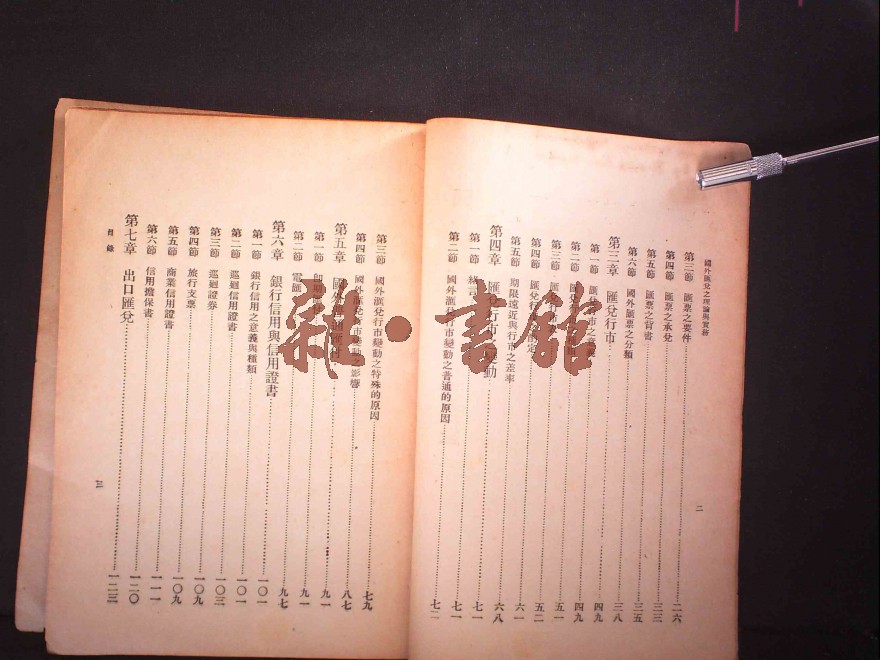 國外匯兌之理論與實務
第三節 匯票之要件 二六
第四節 匯票之承兌 三三
第五節 匯票之背書 三五
第六節 國外匯票之分類 三八
第三章 匯兌行市 四九
第一節 匯兌行市之意義 四九
第二節
第三節 五一
第四節 匯兌行市 定 五二
第五節 期限遠近與行市之差率 六一
第四章 匯兌行市之變動 六八
第一節 七一
第二節 國外匯兌行市變動之普通的原因 七一
二
第三節 國外匯兌行市變動之特殊的原因 七九
第四節 國外匯兌行市變動之影響 八七
第五章 國外匯 九一
第一節 九一
第二節 電匯 九七
第六章 銀行信用與信用證書
第一節 銀行信用之意義與種類 一〇一
第二節 巡迴信用證書 一〇一
第三節 巡迴證券 一〇三
第四節 旅行支票 一〇九
第五節 商業信用證書 一〇九
第六節 信用擔保書 一一一
第七章 出口匯兌 一二〇
目錄
三
一二三
雜·書館